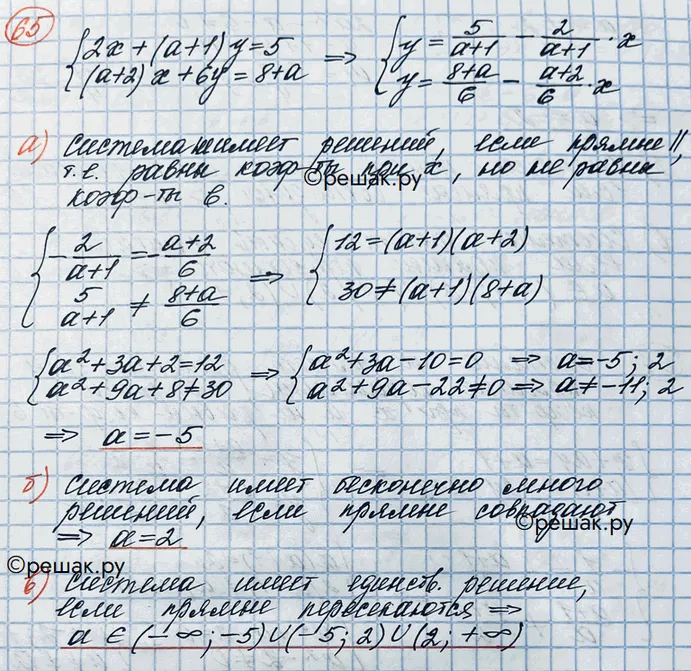 65
{2x + (a+1)y = 5 => {y = 5/(a+1) - 2/(a+1) · x
{(a+2)x + 6y = 8+a {y = (8+a)/6 - (a+2)/6 · x
а) Система не имеет решений, если прямые ||,
т.е. равны коэф-ты при x, но не равны
коэф-ты b.
©решак.ру
{-2/(a+1) = -(a+2)/6 => {12 = (a+1)(a+2)
{5/(a+1) ≠ (8+a)/6 {30 ≠ (a+1)(8+a)
{a²+3a+2=12 => {a²+3a-10=0 => a=-5; 2
{a²+9a+8≠30 {a²+9a-22≠0 => a≠-11; 2
=> a = -5
б) Система имеет бесконечно много
решений, если прямые совпадают
=> a=2
©решак.ру
©решак.ру
в) Система имеет единств. решение,
если прямые пересекаются =>
a ∈ (-∞; -5)∪(-5; 2)∪(2; +∞)